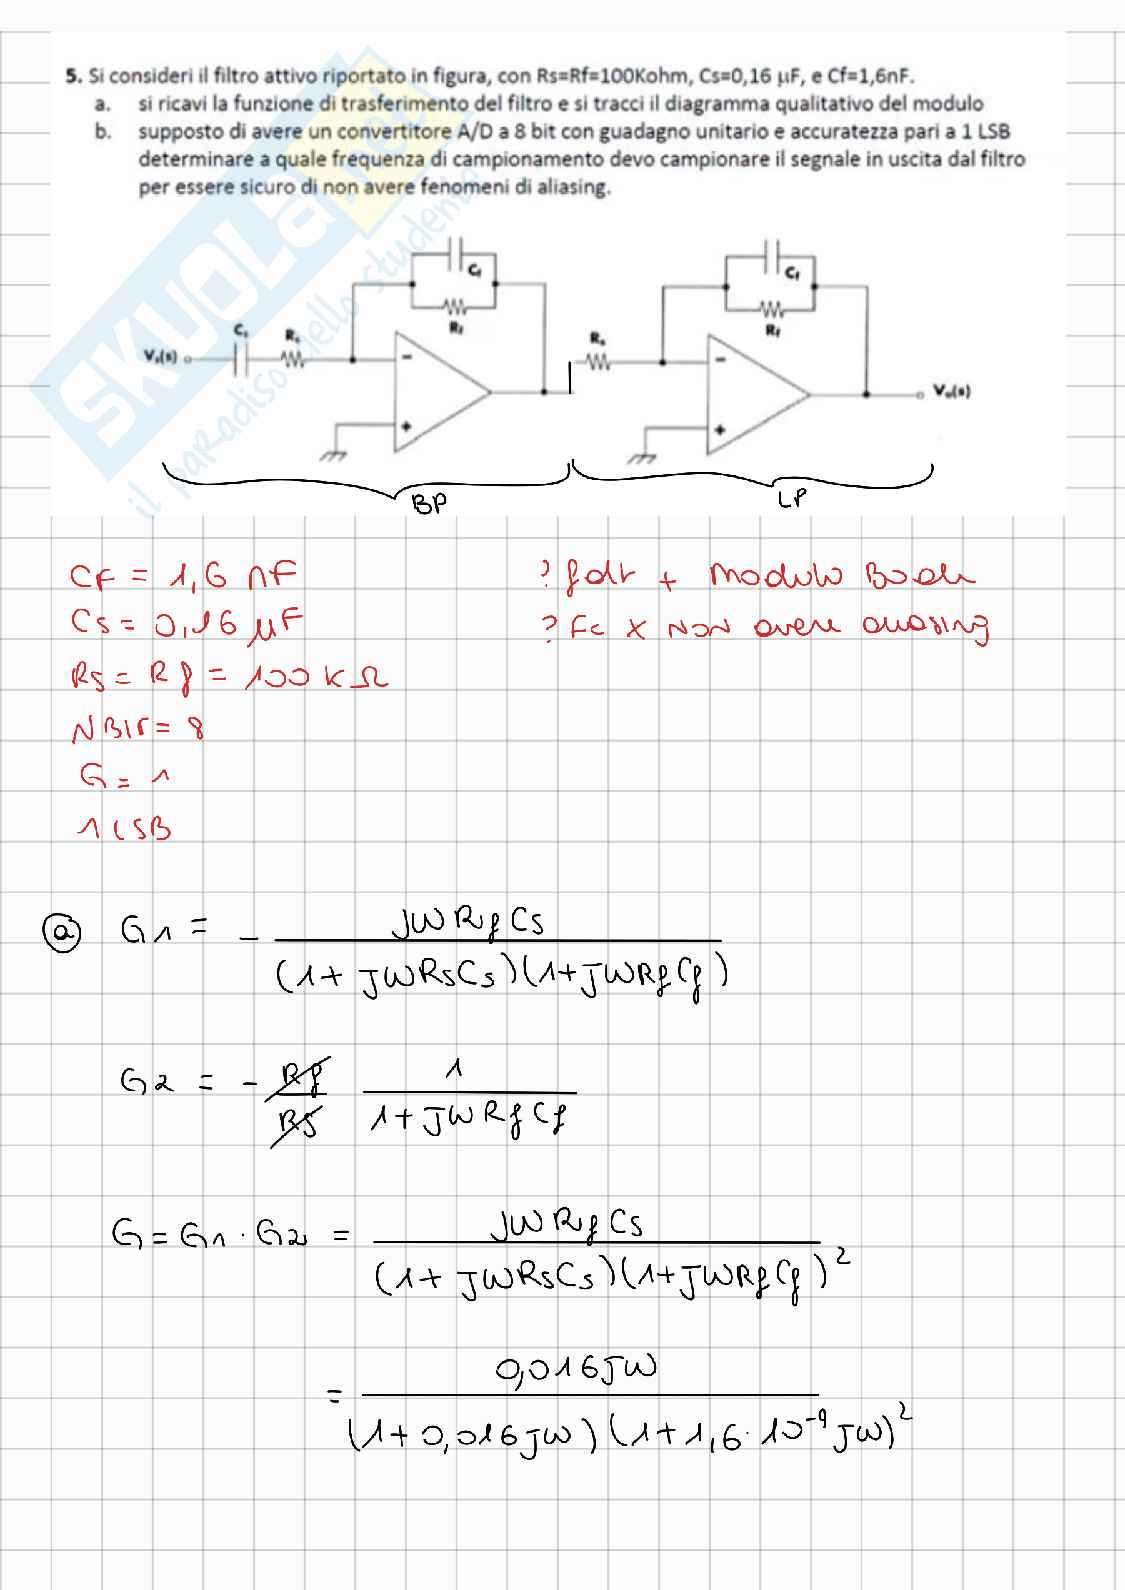 5. Si consideri il filtro attivo riportato in figura, con Rs=Rf=100Kohm, Cs=0,16 μF, e Cf=1,6nF.
a. si ricavi la funzione di trasferimento del filtro e si tracci il diagramma qualitativo del modulo
b. supposto di avere un convertitore A/D a 8 bit con guadagno unitario e accuratezza pari a 1 LSB
determinare a quale frequenza di campionamento devo campionare il segnale in uscita dal filtro
per essere sicuro di non avere fenomeni di aliasing.
SKUOLA.net
il paradiso dello studente
Cf Cf
Rf Rf
Vs(s) Cs Rs Rs
- -
+ +
Vo(s)
BP LP
CF = 1,6 nF ? fdt + modulo Bode
Cs = 0,16 μF ? Fc x NON avere aliasing
Rs = Rf = 100 KΩ
NBIT = 8
G = 1
1 LSB
a G1 = - jwRfCs / (1+jwRsCs)(1+jwRfCf)
G2 = - Rf/Rs 1 / 1+jwRfCf
G = G1 · G2 = jwRfCs / (1+jwRsCs)(1+jwRfCf)²
= 0,016jw / (1+0,016jw)(1+1,6·10⁻⁹jw)²